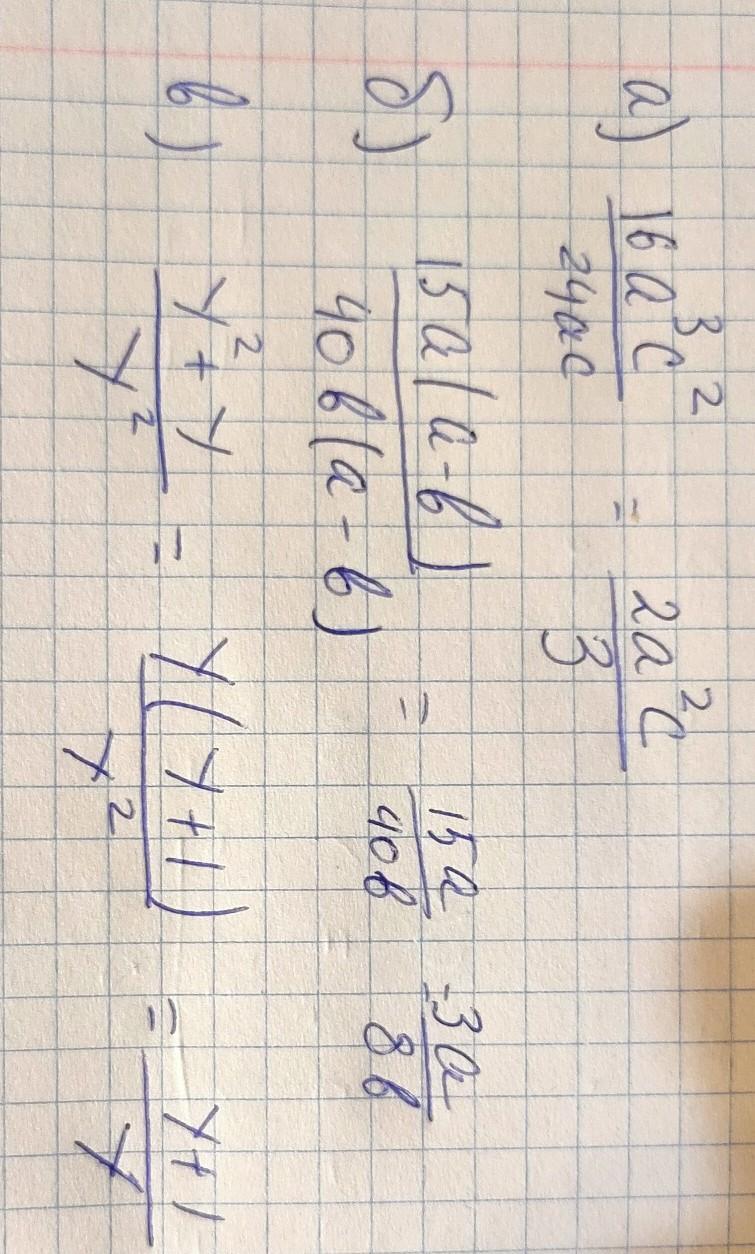 а) 16a³c² / 24ac = 2a²c / 3
б) 15a(a-b) / 40b(a-b) = 15a / 40b - 3a / 8b
в) y²+y / y² = y(y+1) / y² = y+1 / y